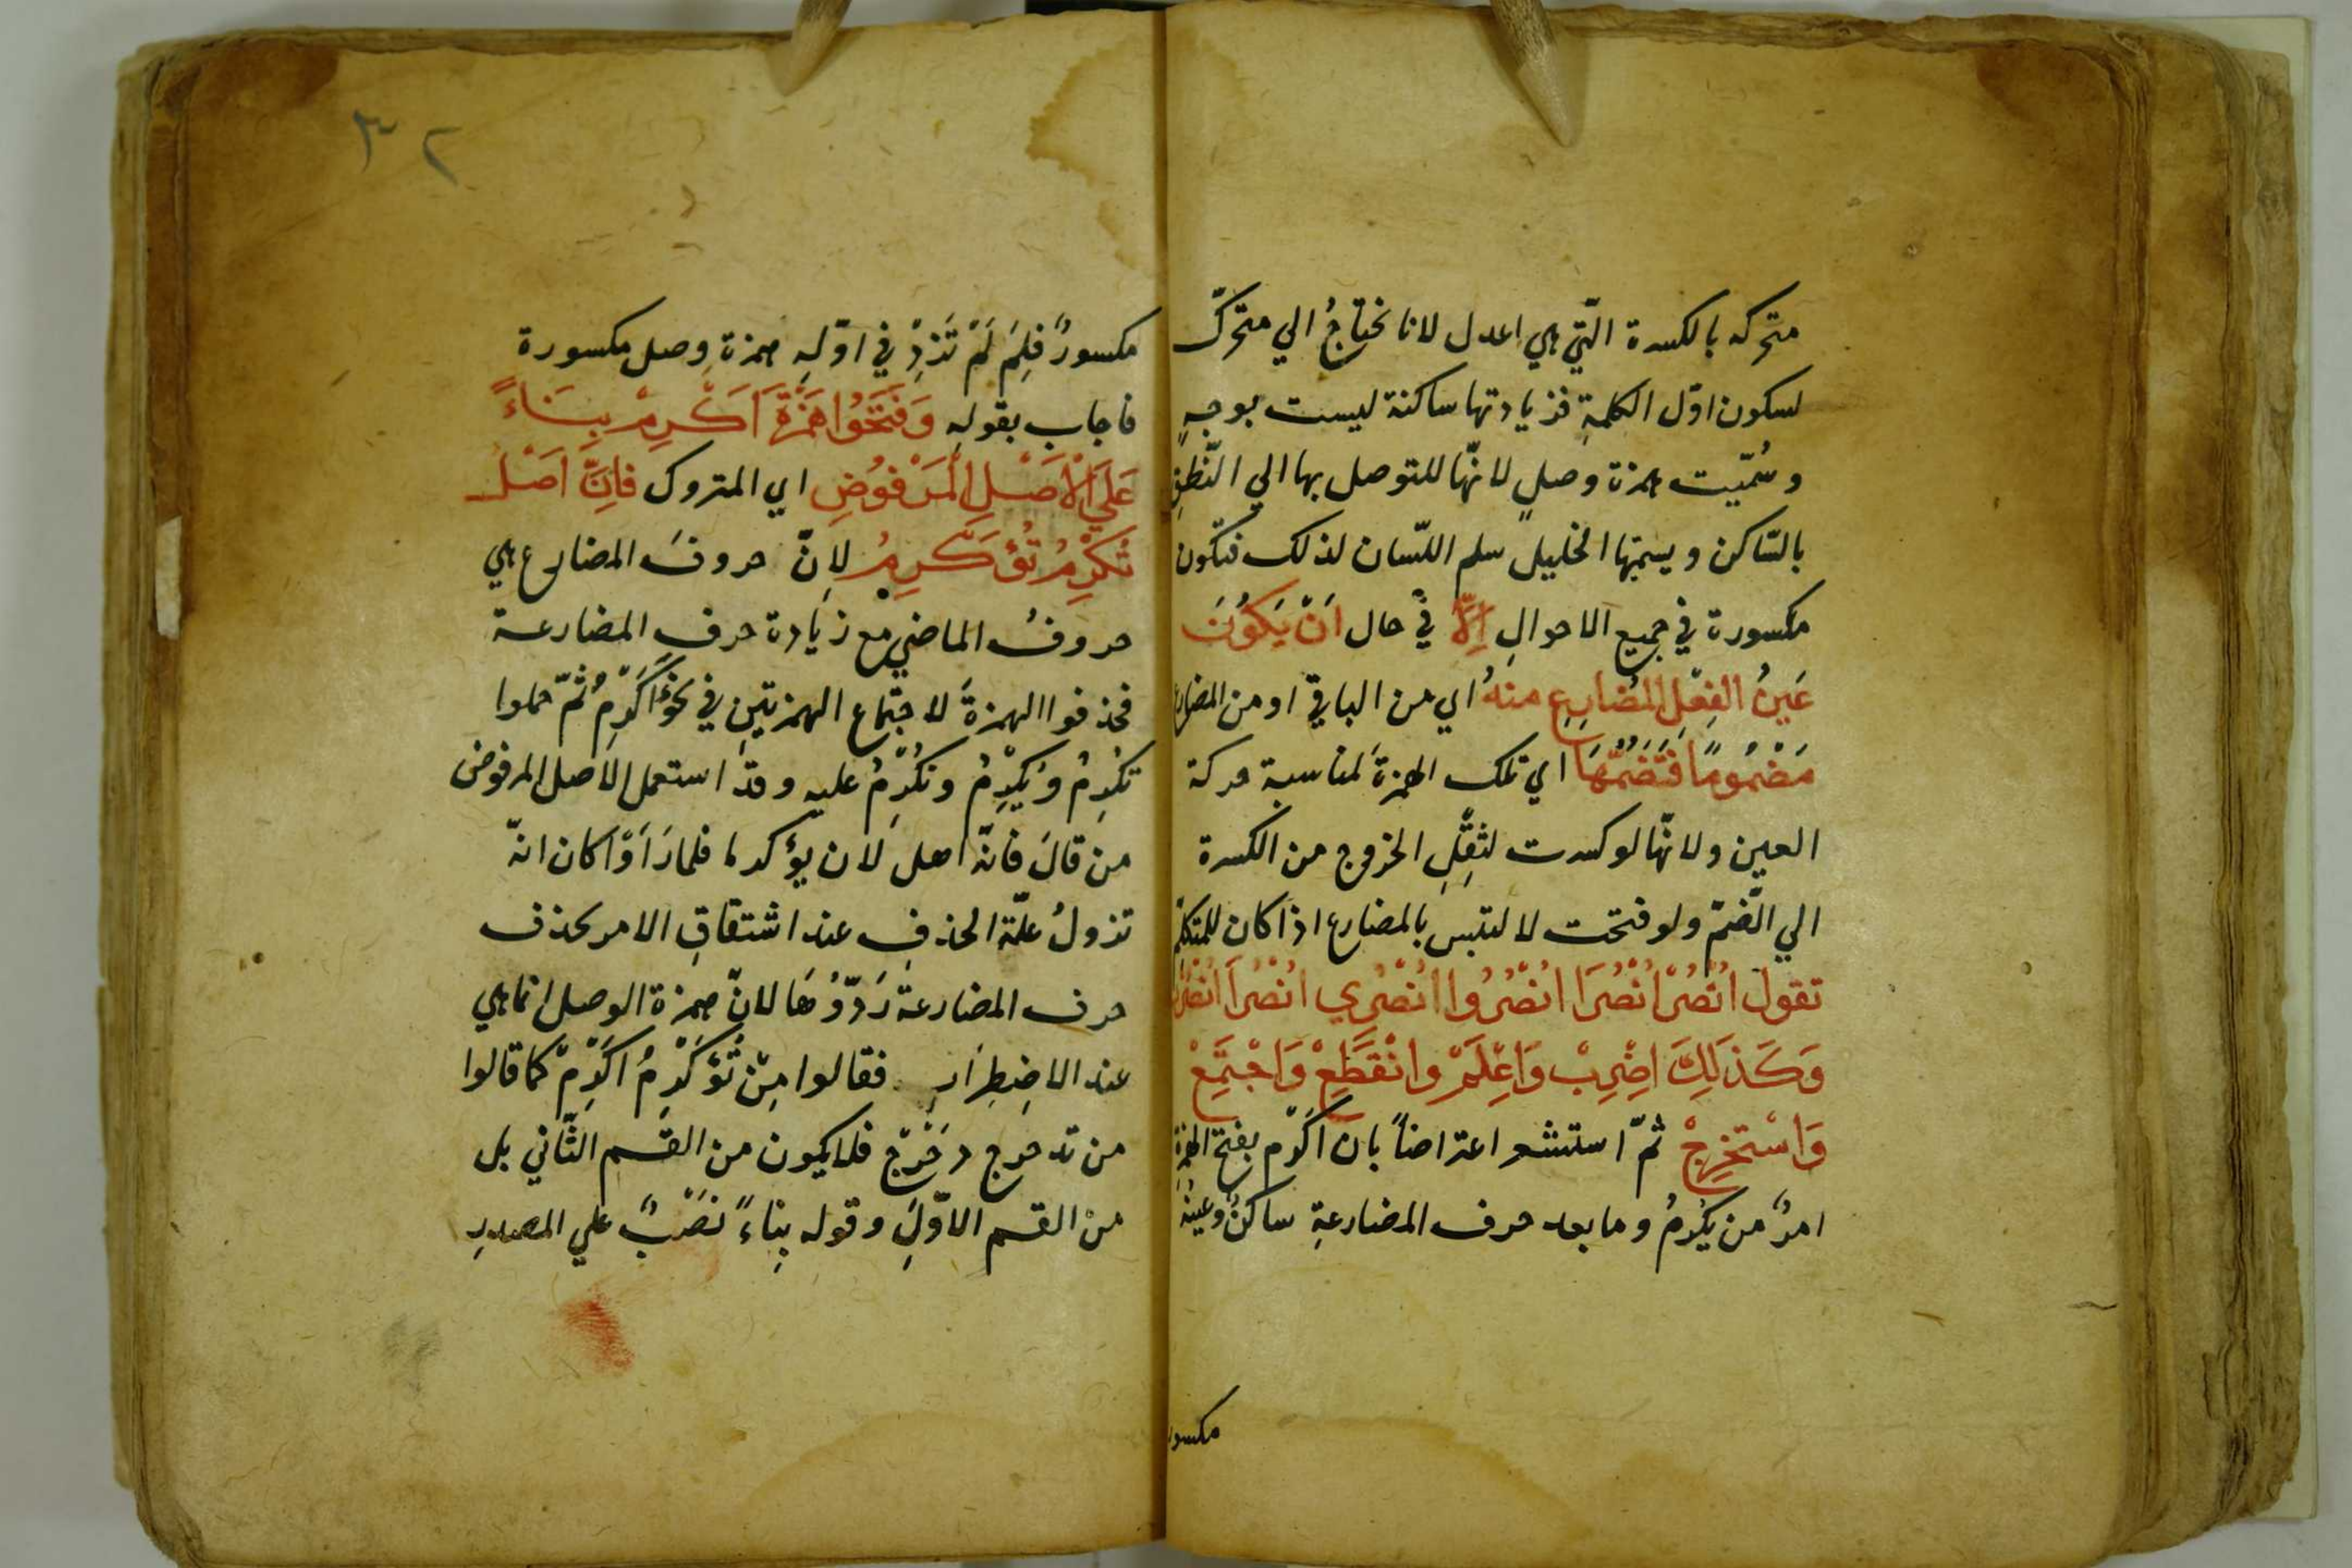 متحركه بالكسرة الّتي هي اعدل لانا نحتاجُ الي متحرّك
لسكون اوّل الكلمةِ فزيادتها ساكنة ليست بوجهٍ
وسُمّيت همزة وصلٍ لانّها للتوصل بها الي النّطقِ
بالسّاكن ويسمّيها الخليل سلم اللسّان لذلك فتكون
مكسورة في جميع الاحوالِ اِلّا في حال اَنْ يَكُونَ
عَينُ الفِعْلِ المُضارِعِ منهُ اي من الباقي او من المضارع
مَضْمُومًا فَتَضُمُّهَا اي تلك الهمزةَ لمناسبة حركة
العين ولانّها لو كسرت لثقِّلِ الخروج من الكسرة
الي الضّمّ ولو فتحت لالتبس بالمضارع اذا كان للمتكلّم
تقول اُنْصُرْ اُنْصُرَا اُنْصُرُوا اُنْصُرِي اُنْصُرَا اُنْصُرْنَ
وَكَذَلِكَ اِضْرِبْ وَاعْلَمْ وانْقَطِعْ وَاجْتَمِعْ
وَاسْتَخْرِجْ ثمّ استشعر اعتراضاً بان اَكْرِم بفتح الهمزة
امرٌ من يكرمُ وما بعد حرف المضارعةِ ساكنٌ وعينُهُ
مكسور
٣٢
مكسورٌ فلِمَ لَمْ تَزِدْ في اوّلِهِ همزة وصل مكسورة
فاجاب بقوله وَفَتَحُوا هَمْزَةَ اَكْرِمْ بِنَاءً
عَلَي الْاَصْلِ الْمَرْفُوضِ اي المتروك فاِنَّ اَصْلَ
تُكْرِمُ تُؤَكْرِمُ لاِنّ حروفَ المضارع هي
حروفُ الماضي مع زيادة حرفِ المضارعة
فحذفوا الهمزةَ لاجتماع الهمزتينِ في نحو أُاَكْرِمُ ثمّ حملوا
تكرِمُ ويُكْرِمُ ونكْرِمُ عليه وقد استعمل الاصل المرفوض
من قالَ فانّه اهل لان يؤكرما فلما رَاَوْا كان انّه
تزولُ علّة الحذفِ عند اشتقاقِ الامر بحذف
حرف المضارعة رَدّوُهَا لانّ همزة الوصل انما هي
عند الاضِطِرَارِ فقالوا مِنْ تُؤَكْرِمُ اكْرِمْ كما قالوا
من تدحرج دَحْرِجْ فلا يكون من القسم الثّاني بل
منْ القسم الاوّلِ وقوله بِناءً نَصْبٌ علي المصدرِ